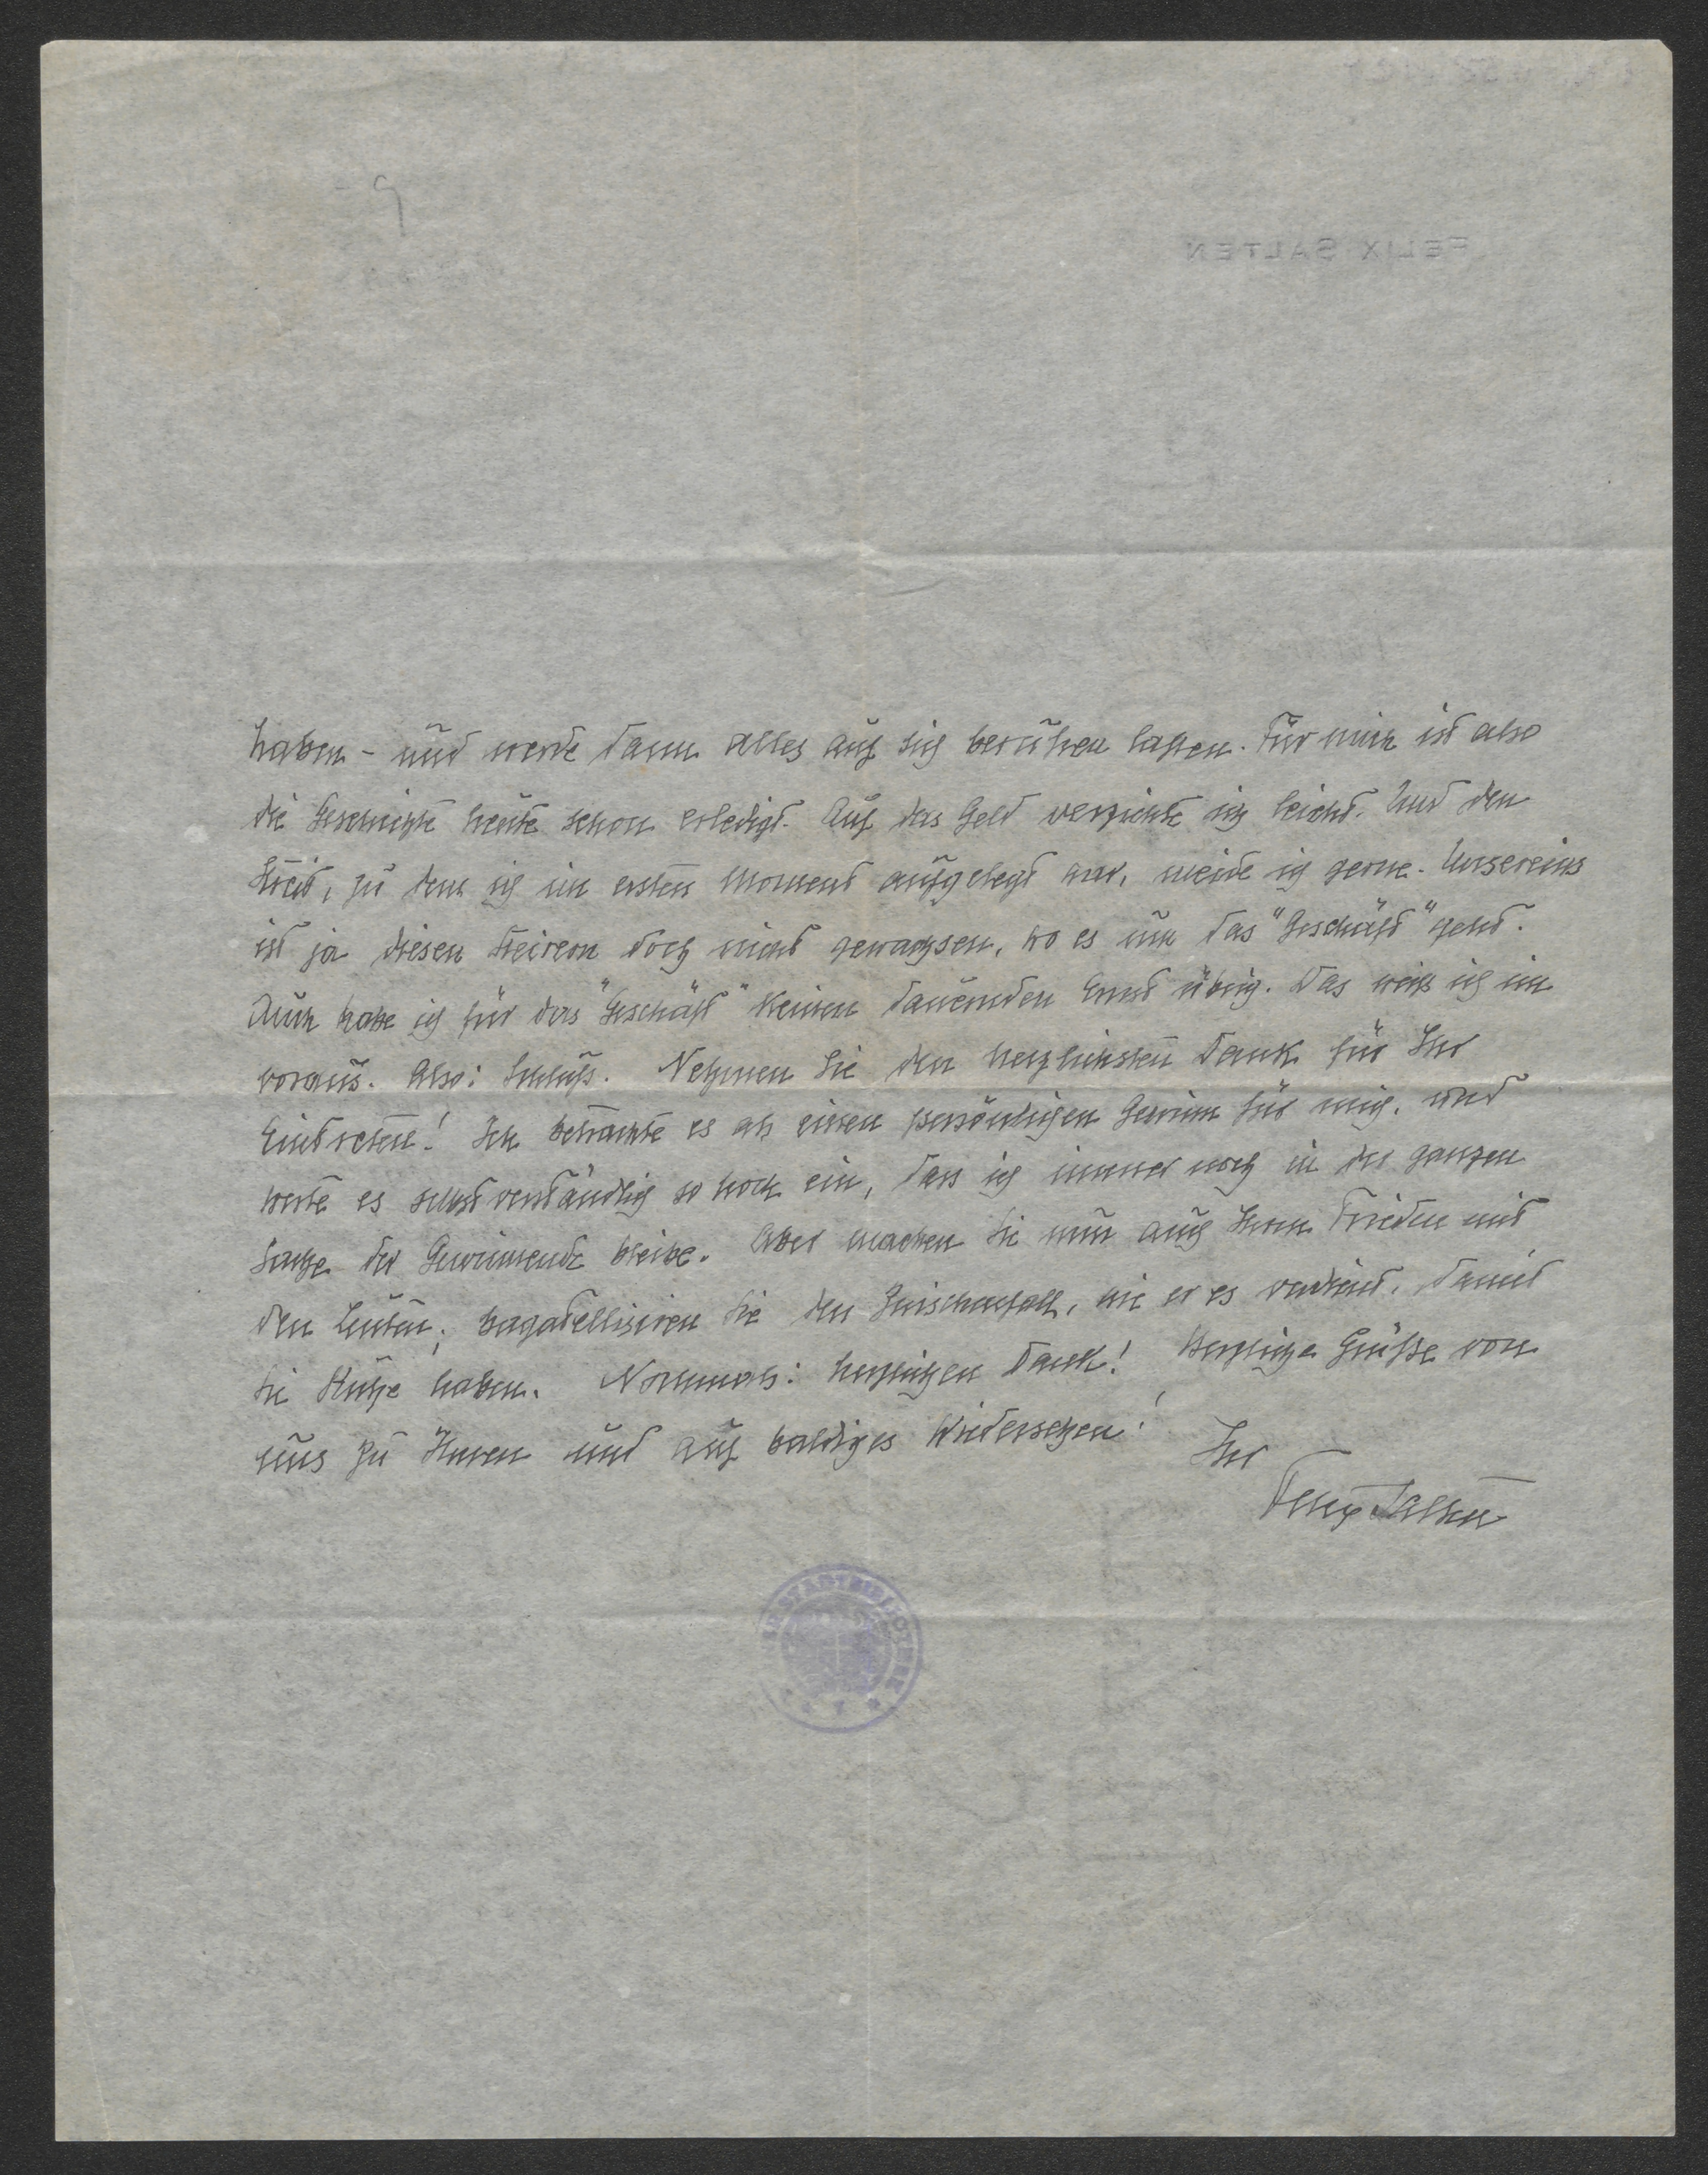 FELIX SALTEN
haben – und werde dann alles auf sich beruhen lassen. Für mich ist also
die Geschichte heute schon erledigt. Auf das Geld verzichte ich leicht. Und den
Streit, zu dem ich im ersten Moment aufgelegt war, meide ich gerne. Unsereins
ist ja diesen Leuten doch nicht gewachsen, wo es um das "Geschäft" geht.
Auch habe ich für das "Geschäft" keinen dauernden Ernst übrig. Das weiß ich im
voraus. Also: Schluß. Nehmen Sie den herzlichsten Dank für Ihr
Eintreten! Ich betrachte es als einen persönlichen Gewinn für mich, und
werte es selbstverständlich so hoch ein, dass ich immer noch in der ganzen
Sache der Gewinnende bleibe. Aber machen Sie nun auch Ihren Frieden mit
den Leuten; bagatellisiren Sie den Zwischenfall, wie er es verdient, damit
Sie Ruhe haben. Nochmals: herzlichen Dank! Herzliche Grüße von
uns zu Ihnen und auf baldiges Wiedersehen!
Ihr
Felix Salten
STADTBIBLIOTHEK